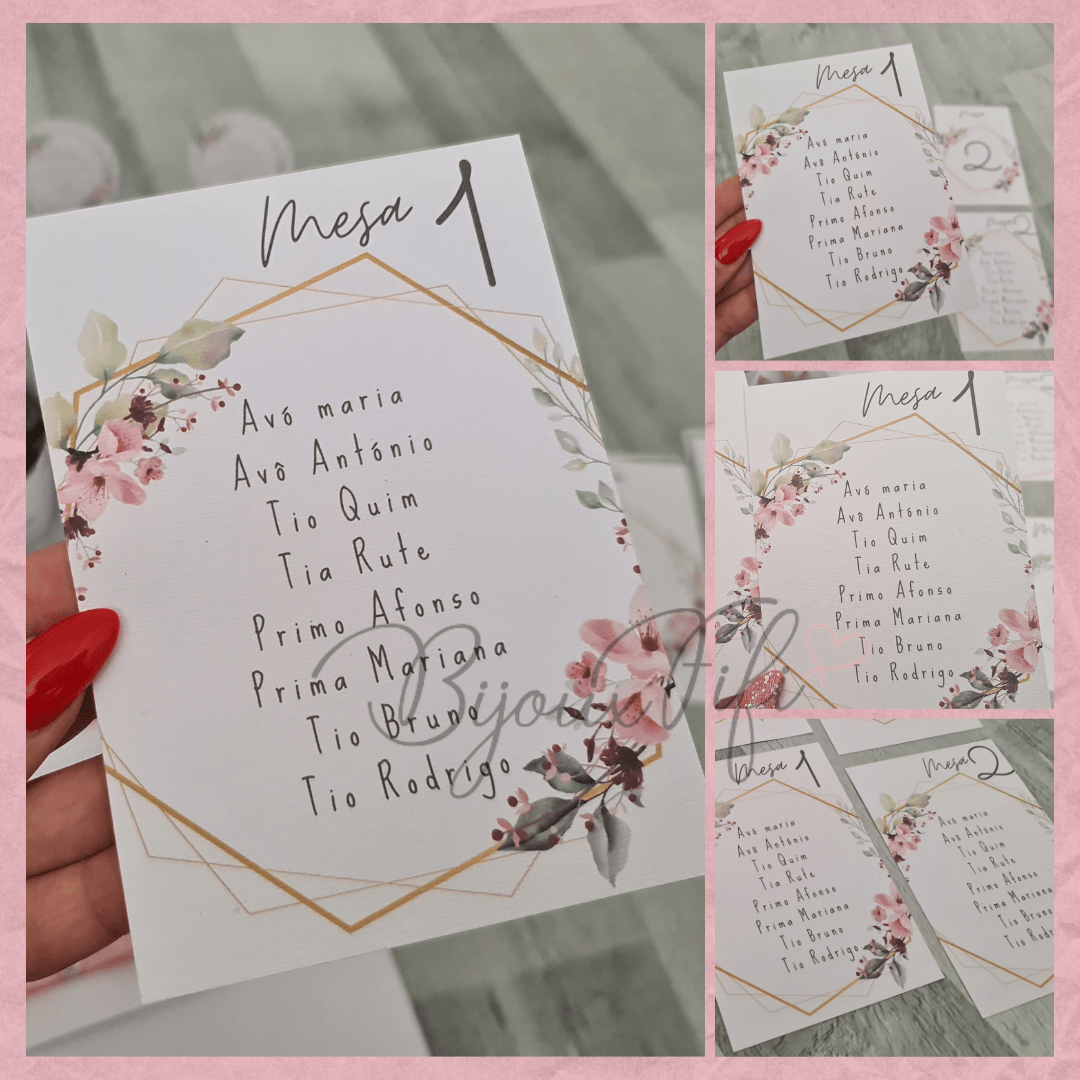 Mesa 1
Avó maria
Avô António
Tio Quim
Tia Rute
Primo Afonso
Prima Mariana
Tio Bruno
Tio Rodrigo
BijouxFifi
Mesa 1
Avó maria
Avô António
Tio Quim
Tia Rute
Primo Afonso
Prima Mariana
Tio Bruno
Tio Rodrigo
Mesa
2
Mesa 1
Avó maria
Avô António
Tio Quim
Tia Rute
Primo Afonso
Prima Mariana
Tio Bruno
Tio Rodrigo
Mesa 1
Avó maria
Avô António
Tio Quim
Tia Rute
Primo Afonso
Prima Mariana
Tio Bruno
Tio Rodrigo
Mesa 2
Avó maria
Avô António
Tio Quim
Tia Rute
Primo Afonso
Prima Mariana
Tio Bruno
Tio Rod